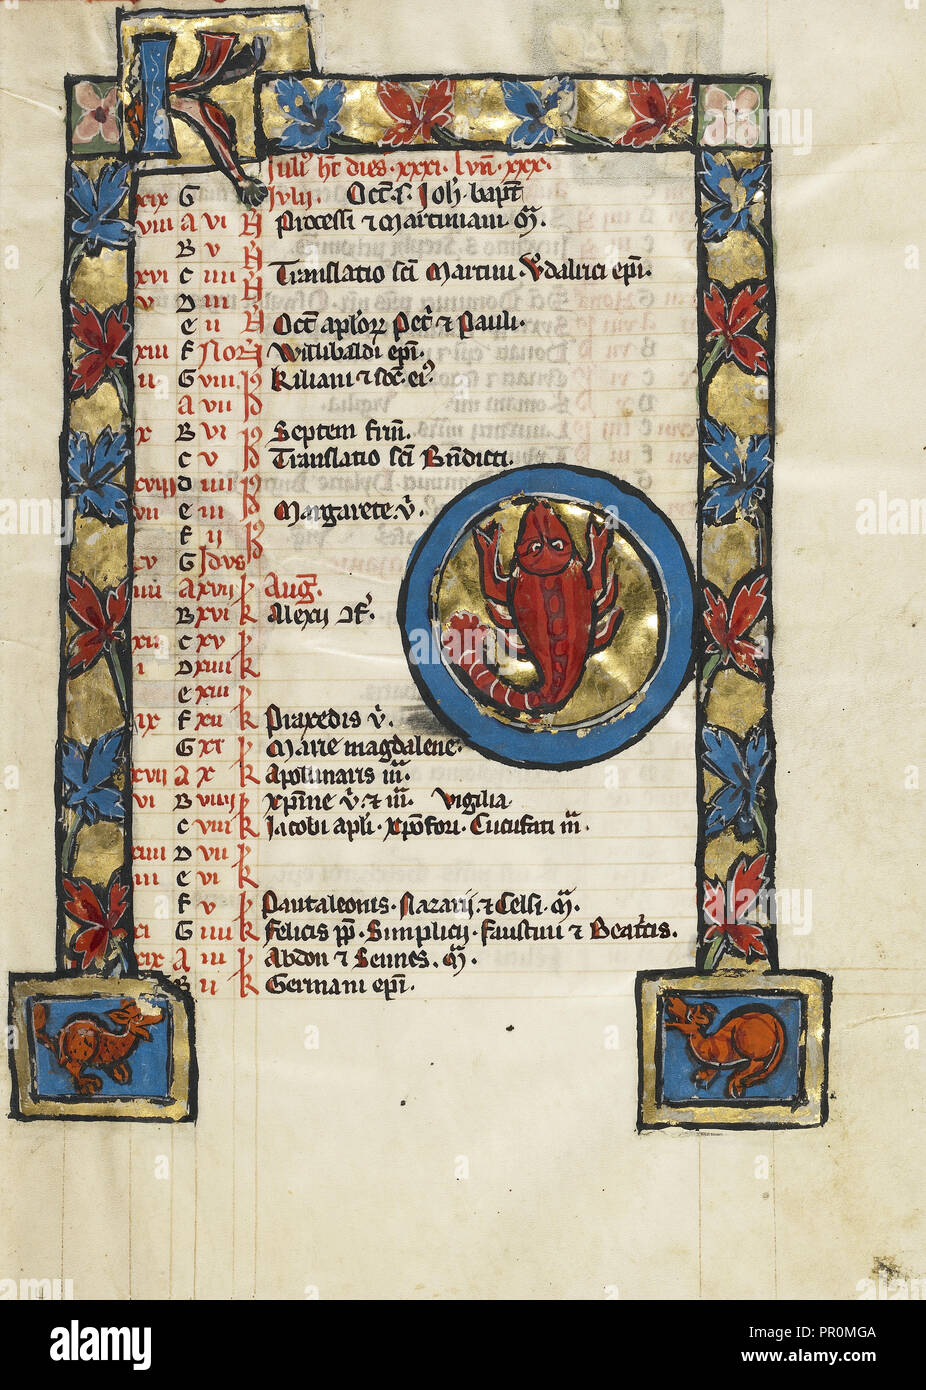 K
Juli⁹ ht dies · xxxi · lun̄ xxx ·
xix G Julij. Oct̄ s̄ Joh̄ · bapt̄
viii A vi N Processi ⁊ Martiniani · M̄.
B v N
xvi C iiii N Translatio sc̄i Martini · Vdalrici ep̄i ·
v D iii N
e ii N Oct̄ ap̄lor̄ Pet̄ ⁊ Pauli ·
xiii F Non Willibaldi ep̄i ·
ii G viii Id Kiliani ⁊ soc̄ ei⁹
A vii Id
x B vi Id Septem frm̄ ·
C v Id Translatio sc̄i Bn̄dicti ·
xviii D iiii Id
vii e iii Id Margarete · v̄ ·
F ii Id
xv G Idus
iiii A xvii k Auḡ ·
B xvi k Alexii 9f̄ ·
xii C xv k
i D xiiii k
e xiii k
ix F xii k Praxedis v̄ ·
G xi k Marie magdalene ·
xvii A x k Apollinaris m̄ ·
vi B viiij k xp̄ine v̄ · ⁊ m̄ · Vigilia
C viii k Jacobi apl̄i · xp̄ofori · Cucufati m̄ ·
xiiii D vii k
iii e vi k
F v k Pantaleonis · Nazarij ⁊ Celsi · M̄ ·
xi G iiii k Felicis pp̄ · Simplicij · Faustini ⁊ Beat̄cis ·
xix A iii k Abdon ⁊ Sennes · M̄ ·
B ii k Germani ep̄i ·
alamy
alamy stock photo
Image ID: PR0MGA
www.alamy.com